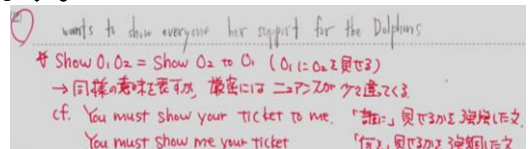 wants to show everyone her support for the Dolphins
* Show O₁ O₂ = Show O₂ to O₁ (O₁にO₂を見せる)
→ 同様の意味を表すが、厳密にはニュアンスが少々違ってくる
cf. You must show your ticket to me. 「誰に」見せるかを強調した文
You must show me your ticket 「何を」見せるかを強調した文